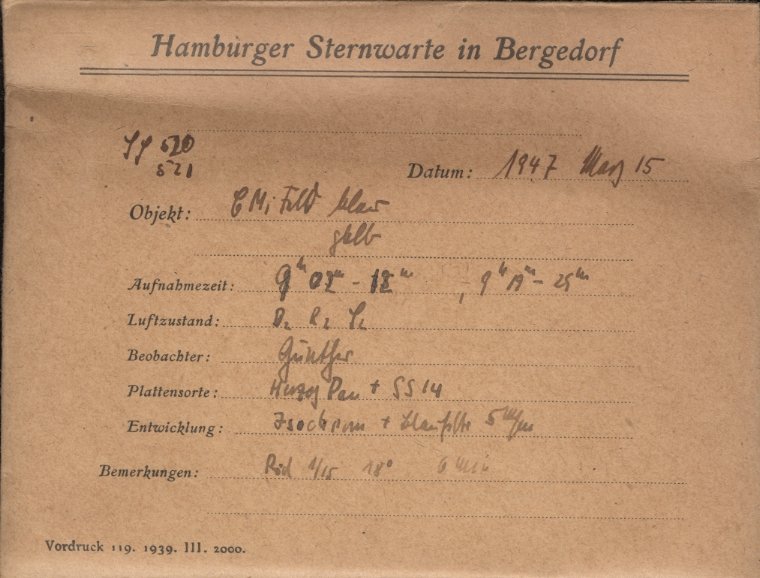 Hamburger Sternwarte in Bergedorf
520
521
Datum: 1947 März 15
Objekt: Feld blau
gelb
Aufnahmezeit: 9h
Luftzustand: D2 R2
Beobachter: Günther
Plattensorte: Pan + SS 14
Entwicklung: Isochrom + Blaufilter 5
Bemerkungen: Rod 1/15 18° 6 min
Vordruck 119. 1939. III. 2000.